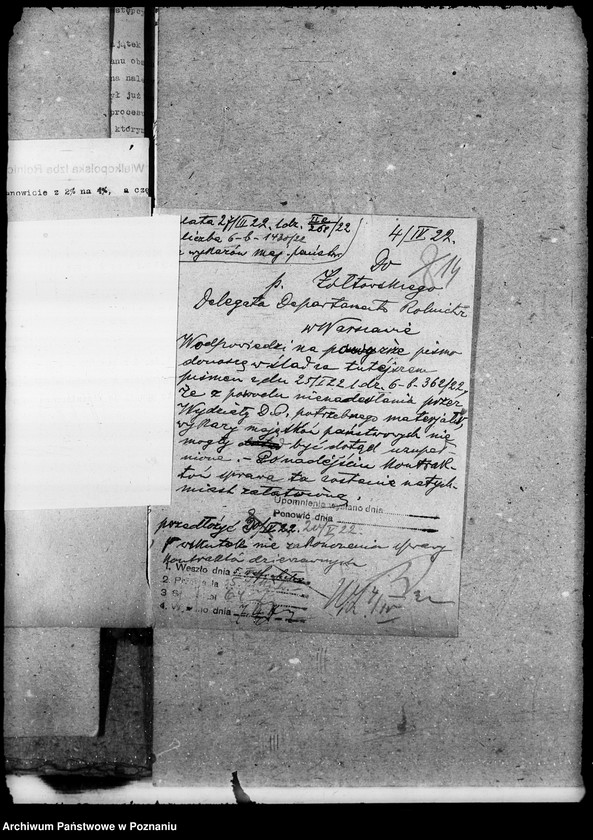 jątek
anu obs
na nale
ył już
proces
którym
Wielkopolska Izba Rolnic
anowicie z 2% na 4%, a czę
data 27/III 22. l.dz. /22
liczba 6-b-1430/22
wykazów maj. państw.
4/IV 22.
Do
p. Żółtowskiego
Delegata Departamentu Rolnictw
w Warszawie
W odpowiedzi na powyższe pismo
donoszę w ślad za tutejszem
pismem z dn. 25/I 22 l.dz. 6-b-362/22,
że z powodu nienadesłania przez
Wydziały D.P. potrzebnego materjału
wykazy majątków państwowych nie
mogły być dotąd uzupeł-
nione. - Po nadejściu kontrak-
tów sprawa ta zostanie natych-
miast załatwiona.
Upomnienie wysłano dnia
Ponowić dnia
przedłożyć /IV 22. 20/V 22.
wskutek nie zakończenia sprawy
kontraktów dzierżawnych
1. Weszło dnia
2. Pr
3.
4. W dnia
Archiwum Państwowe w Poznaniu